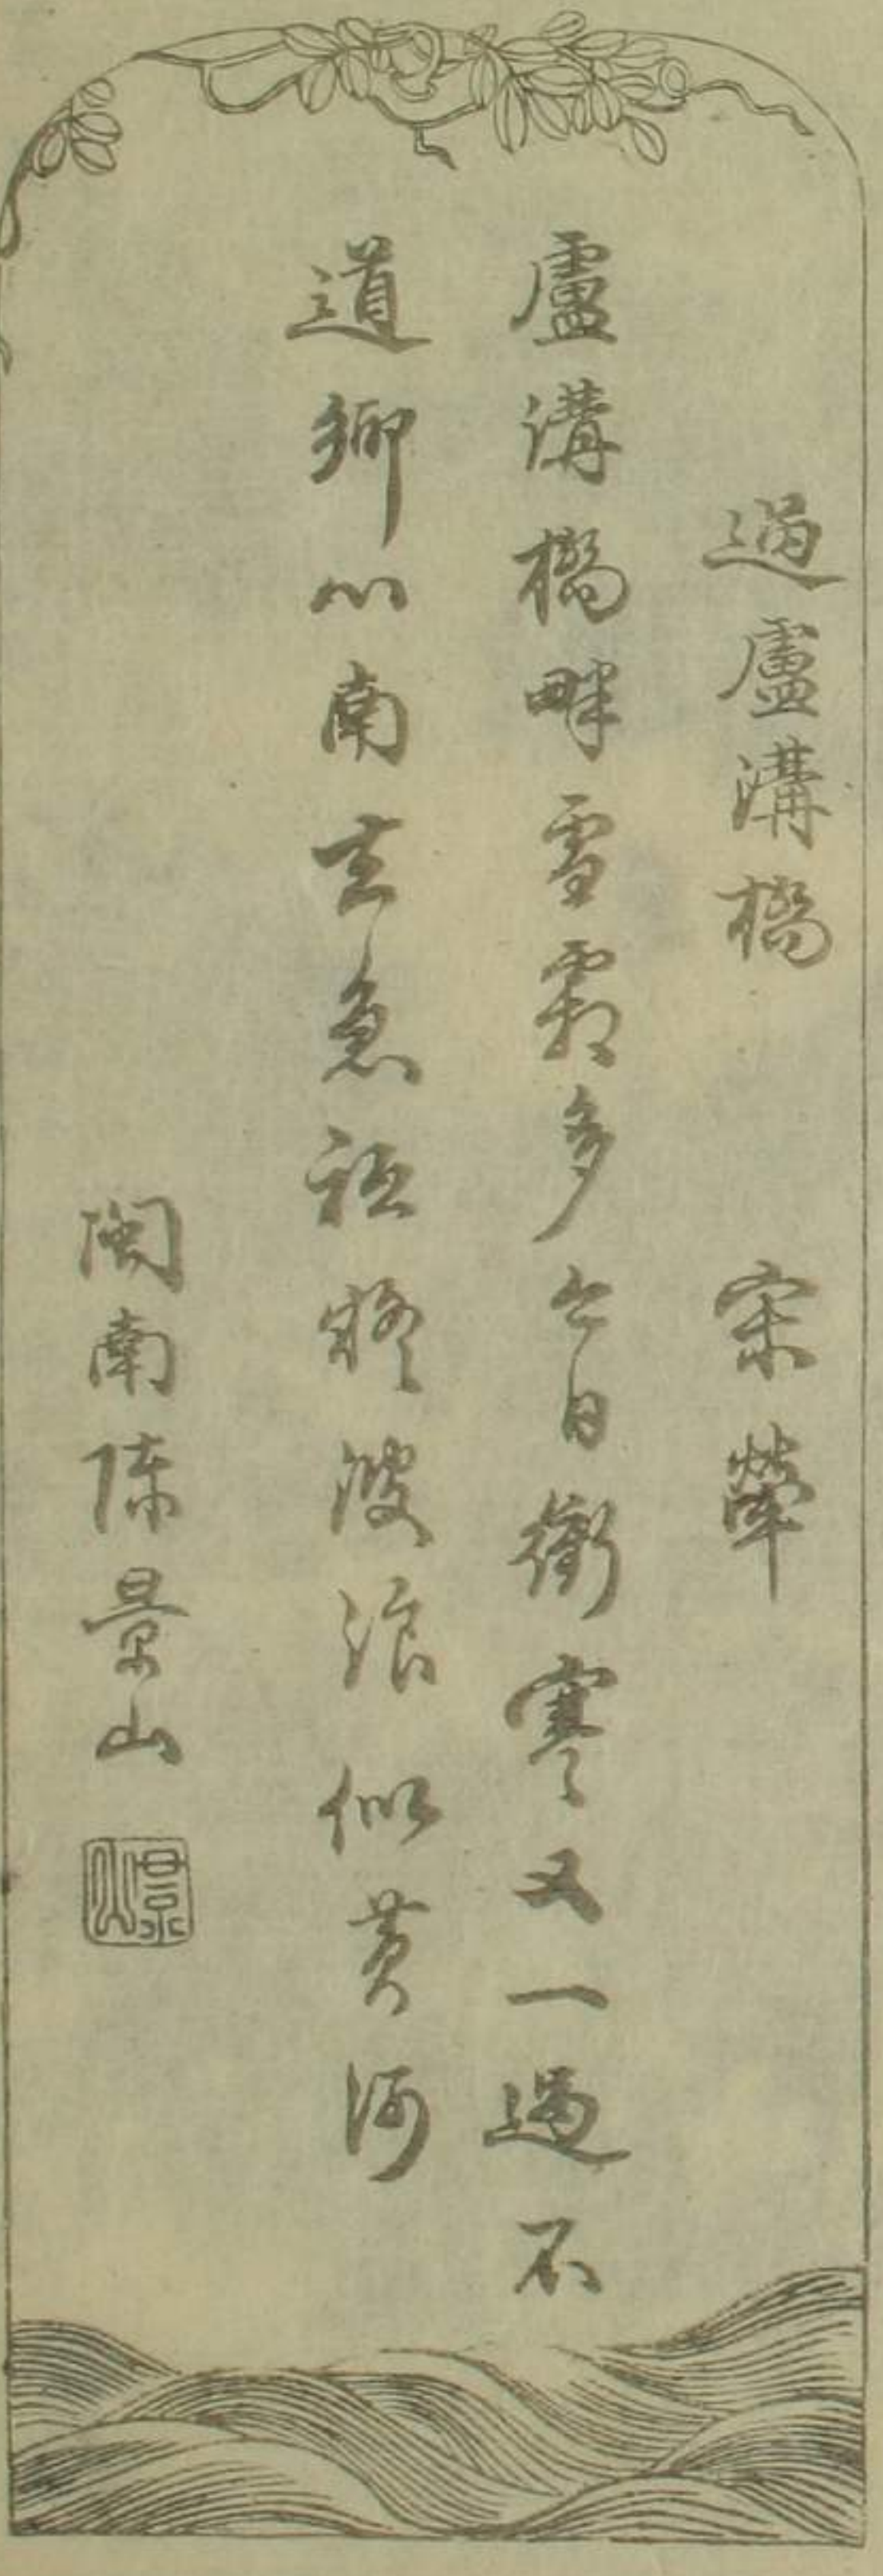 過盧溝橋 宋犖
盧溝橋畔雪霜多今日衝寒又一過不
道鄉心南去急祗疑波浪似黃河
閩南陳景山